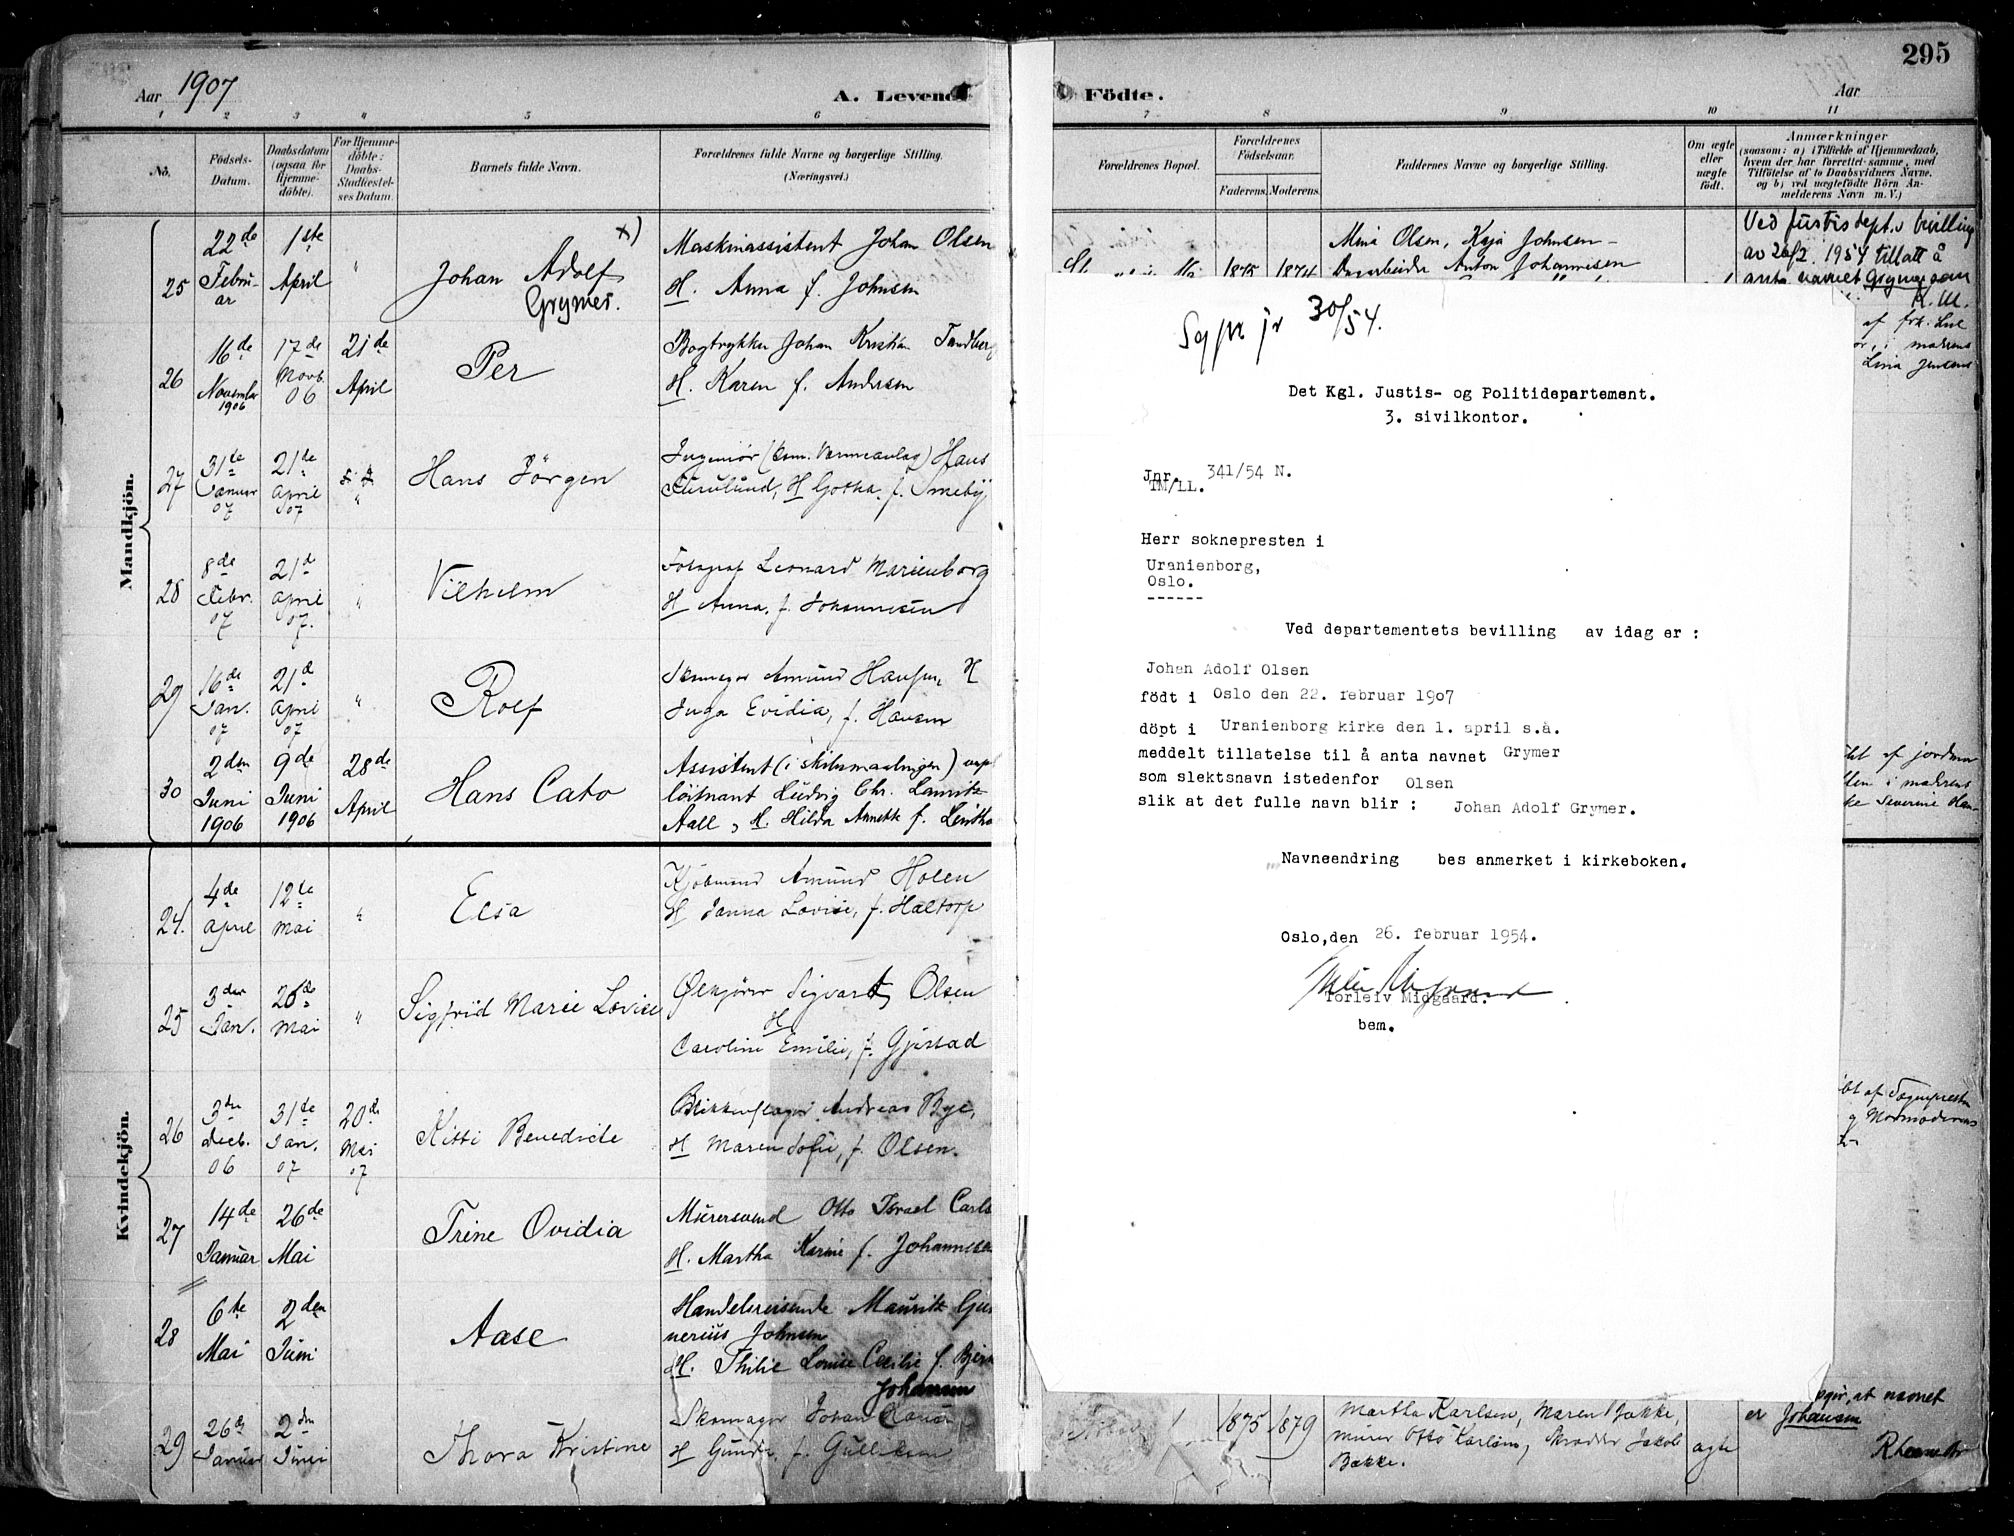 295
Aar 1907
A. Levende Födte.
Aar
1 2 3 4 5 6 7 8 9 10 11
No.
Födsels-
Datum.
Daabsdatum
(ogsaa for
Hjemme-
döbte).
For Hjemme-
döbte:
Daabs-
Stadfæstel-
ses Datum.
Barnets fulde Navn.
Forældrenes fulde Navne og borgerlige Stilling.
(Næringsvei.)
Forældrenes Bopæl.
Forældrenes
Födselsaar.
Faderens. Moderens.
Faddernes Navne og borgerlige Stilling.
Om ægte
eller
uægte
födt.
Anmærkninger
(saasom: a) i Tilfælde af Hjemmedaab,
hvem der har forrettet samme, med
Tilföielse af to Daabsvidners Navne.
og b) ved uægtefödte Börn An-
melderens Navn m. V.)
Mandkjön.
25
22de
Febru-
ar
1ste
April
"
Johan Adolf x)
Grymer.
Maskinassistent Johan Olsen
H. Anna f. Johnsen
1875 1874
Mina Olsen, Kaja Johnsen
Anton Johannesen
Ved Justisdept.s bevilling
av 26/2. 1954 tillatt å
anta navnet Grymer som
K.M.
26
16de
November
1906
17de
Novb.
06
21de
April
Per
Bogtrykker Johan Kristian Tandberg
H. Karen f. Andersen
af frk.
i mødrens
Lina Jensens
27
31te
Januar
07
21de
April
07
"
Hans Jörgen
Ingeniør (kom. Varmeanlæg) Hans
Furulund, H Gotha, f. Smeby
28
8de
Febr.
07
21de
April
07.
"
Vilhelm
Fotograf Leonard Marienborg
H Anna, f. Johannesen
29
16de
Jan.
07
21de
April
07
"
Rolf
Skomager Amund Hansen, H
Inga Evidia, f. Hansen
30
2den
Juni
1906
9de
Juni
1906
28de
April
Hans Cato
Assistent (i skibsmaalingen)
löitnant Ludvig Chr. Lauritz
Aall, H. Hilda Annette f.
af jordmor
i mødrens
Severine Han-
Kvindekjön.
24.
4de
April
12te
Mai
"
Elsa
Kjöbmand Amund Holen
H Janna Lovise, f. Haltorp
25
3die
Jan.
20de
Mai
"
Sigfrid Marie Lovise
Sigvart Olsen
H
Caroline Emilie, f. Gjerstad
26
3die
Decb.
06
31te
Jan.
07
20de
Mai
07
Kitti Benedicte
Blikkenslager Andreas Bye,
H Maren Sofie, f. Olsen.
af Sognepresten
og Mormoderens
27
14de
Januar
26de
Mai
Trine Ovidia
Murersvend Otto Israel Carls
H. Martha Karine f. Johannesen
28
6te
Mai
2den
Juni
Aase
Handelsreisende Mauritz Gun
nerius Johnsen
H. Thilie Louise Cecilie f.
29
26de
Januar
2den
Juni
Thora Kristine
Johansen
Skomager Johan
H Gunda, f. Gulliksen
1875 1879
Martha Karlsen, Maren Bakke,
murer Otto Karlsen, Skrædder Jakob
Bakke.
ægte
at navnet
er Johansen
jr 30/54.
Det Kgl. Justis- og Politidepartement.
3. sivilkontor.
Jnr. 341/54 N.
TM/LL.
Herr soknepresten i
Uranienborg,
Oslo.
------
Ved departementets bevilling av idag er :
Johan Adolf Olsen
födt i Oslo den 22. februar 1907
döpt i Uranienborg kirke den 1. april s.å.
meddelt tillatelse til å anta navnet Grymer
som slektsnavn istedenfor Olsen
slik at det fulle navn blir : Johan Adolf Grymer.
Navneendring bes anmerket i kirkeboken.
Oslo,den 26. februar 1954.
Torleiv Midgaard.
bem.